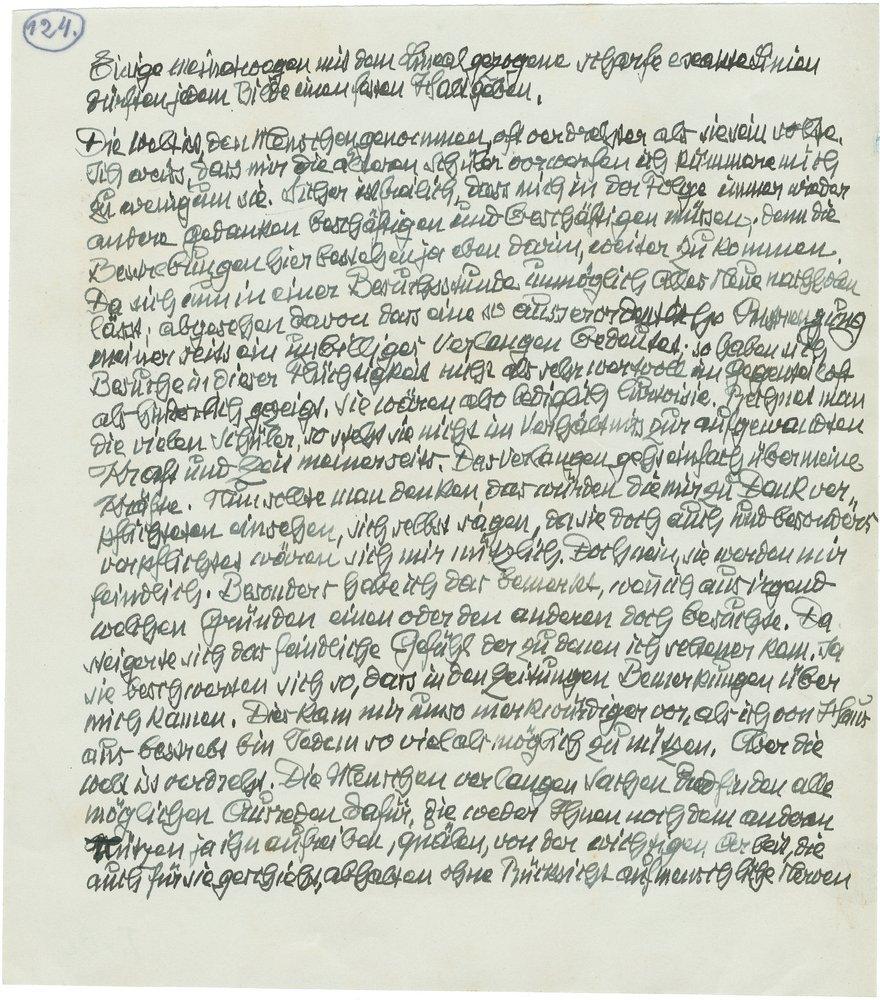 124.
Einige meinetwegen mit dem Lineal gezogene scharfe Linien
dürften jedem Bilde einen festen Halt geben.
Die Welt ist, den Menschen genommen, oft verdrehter als sie sein sollte.
Ich weiss, dass mir die älteren Schüler vorwerfen ich kümmere mich
zu wenig um sie. Sicher ist freilich, dass mich in der Folge immer wieder
andere Gedanken beschäftigen und beschäftigen müssen, denn die
Bestrebungen hier bestehen ja eben darin, weiter zu kommen.
Da sich nun in einer Besuchsstunde unmöglich alles Neue nachholen
lässt, abgesehen davon dass eine so ausserordentliche Anstrengung
meinerseits ein unbilliges Verlangen bedeutet, so haben sich
Besuche in dieser Flüchtigkeit nicht als sehr wertvoll im Gegenteil oft
als hinderlich gezeigt. Sie wären also lediglich Curtoisie. Rechnet man
die vielen Schüler, so steht sie nicht im Verhältnis zur aufgewandten
Kraft und Zeit meinerseits. Das Verlangen geht einfach über meine
Kräfte. Nun sollte man denken das würden die mir zu Dank ver„
pflichteten einsehen, sich selbst sagen, da sie doch auch und besonders
verpflichtet wären sich mir nützlich. Doch nein, sie werden mir
feindlich. Besonders habe ich das bemerkt, wenn ich aus irgend
welchen Gründen einen oder den anderen doch besuchte. Da
steigerte sich das feindliche Gefühl der zu denen ich seltener kam. Ja
sie beschwerten sich so, dass in den Zeitungen Bemerkungen über
mich kamen. Dies kam mir umso merkwürdiger vor, als ich von Haus
aus bestrebt bin Jedem so viel als möglich zu nützen. Aber die
Welt ist verdreht. Die Menschen verlangen Sachen und finden alle
möglichen Ausreden dafür, die weder Ihnen noch dem anderen
nützen ja ihn aufreiben, quälen, von der wichtigen Arbeit, die
auch für sie geschieht, abhalten ohne Rücksicht auf menschliche Nerven